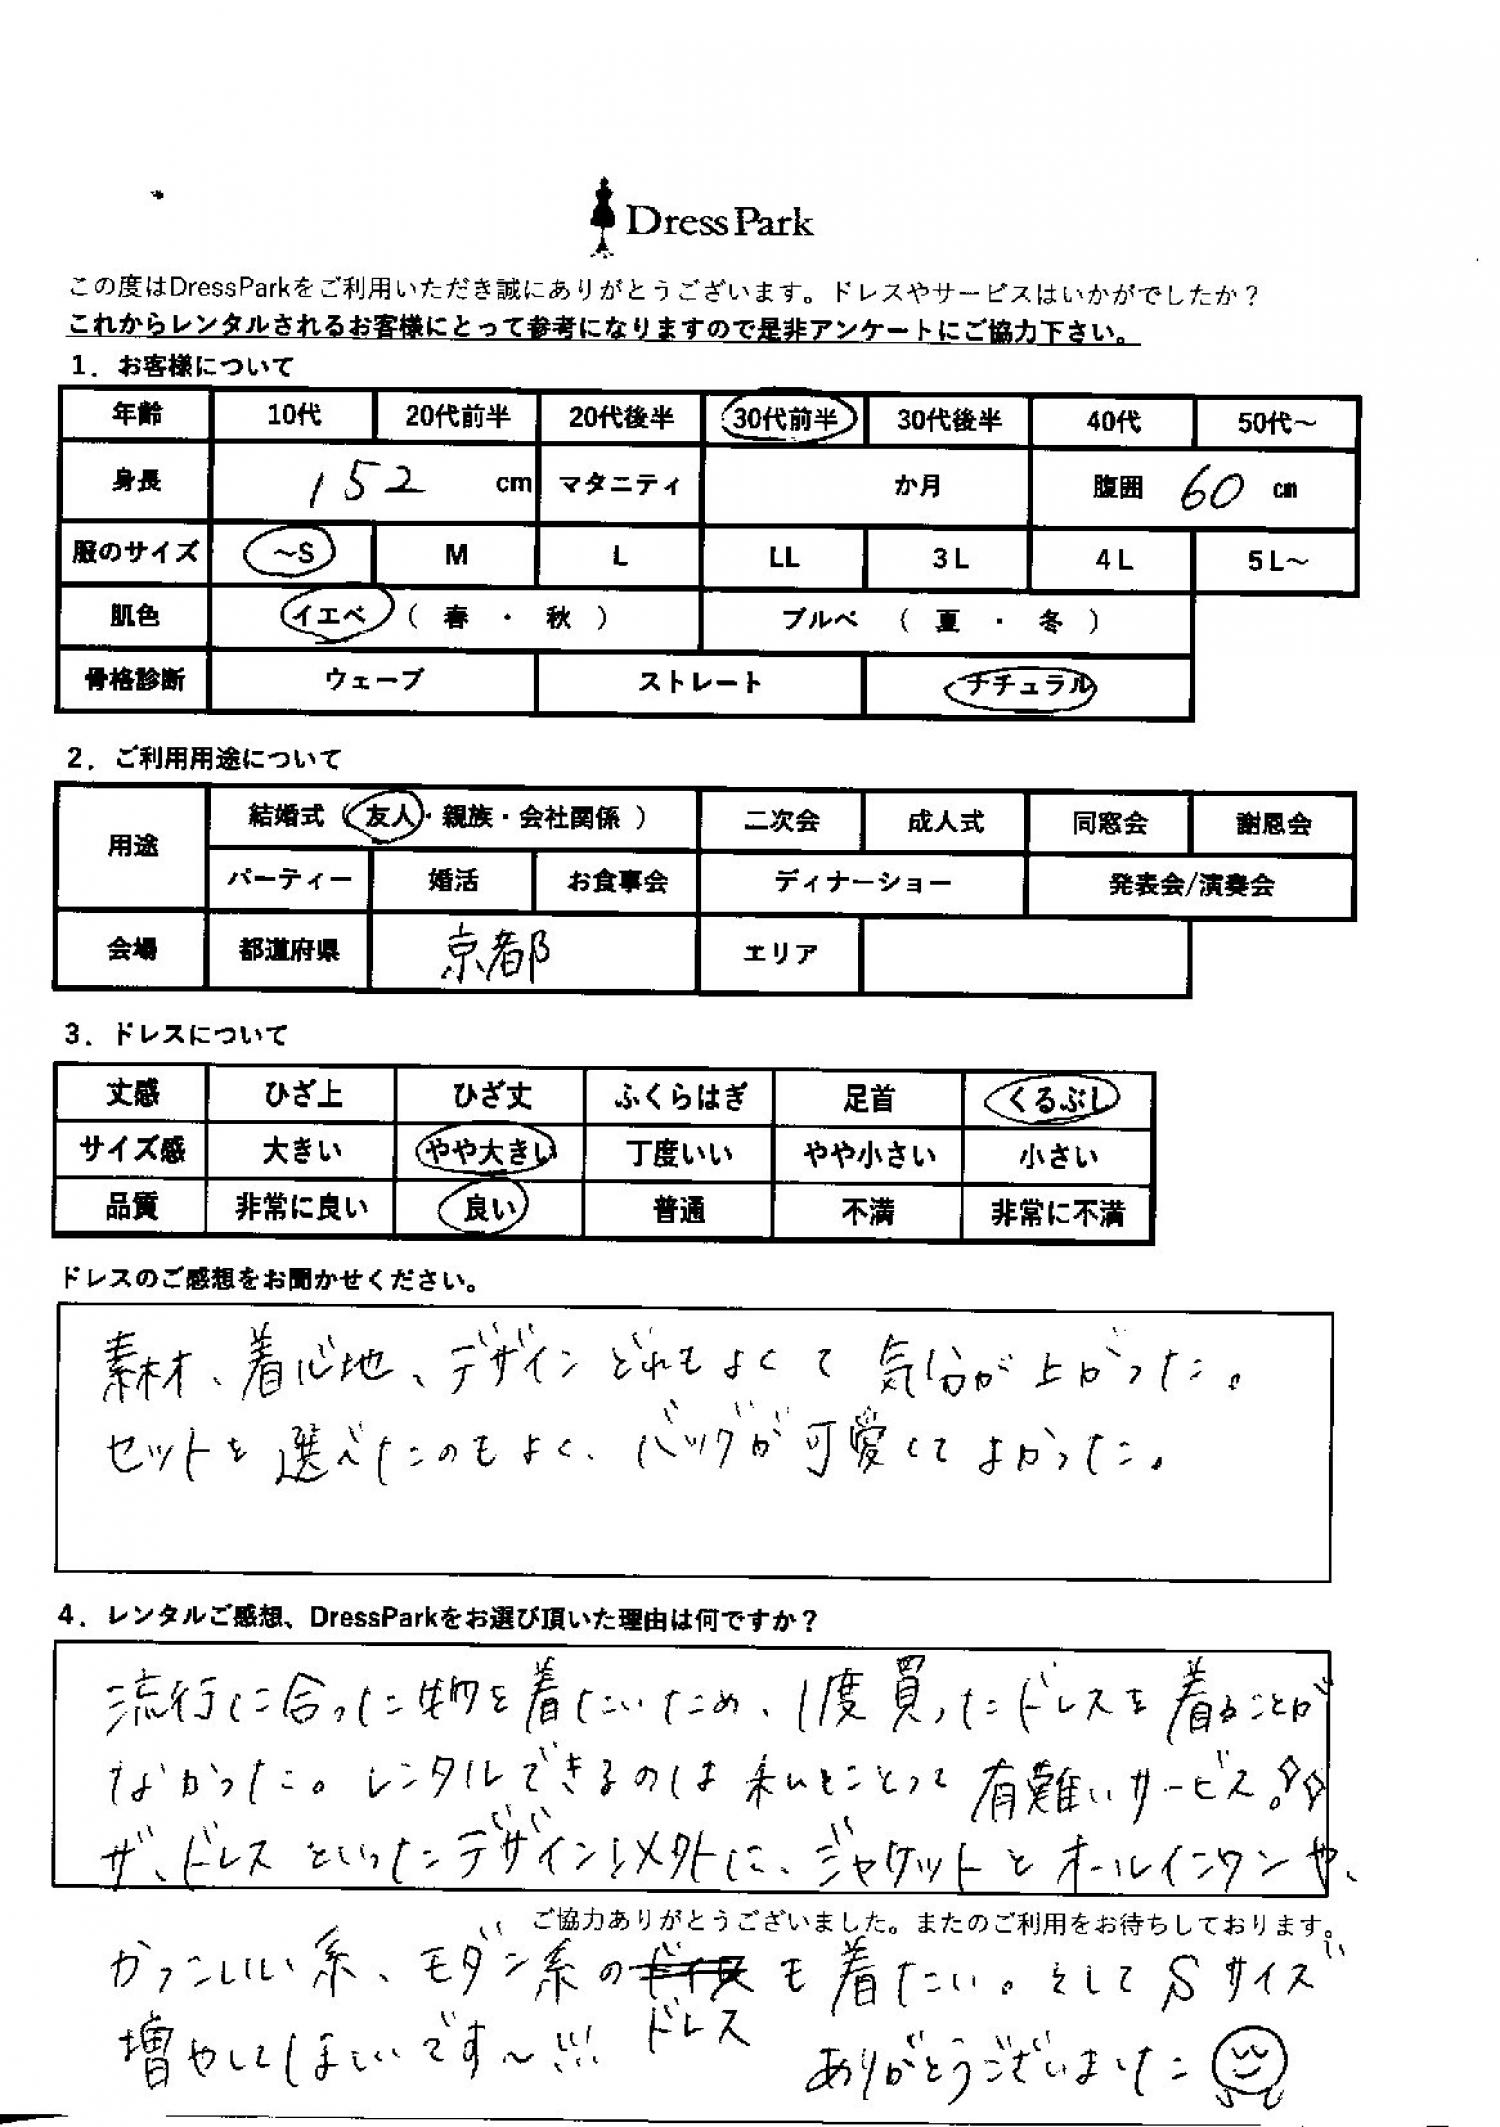 DressPark
この度はDressParkをご利用いただき誠にありがとうございます。ドレスやサービスはいかがでしたか？
これからレンタルされるお客様にとって参考になりますので是非アンケートにご協力下さい。
1．お客様について
年齢 10代 20代前半 20代後半 30代前半 30代後半 40代 50代～
身長 152 cm マタニティ か月 腹囲 60 cm
服のサイズ ～S M L LL 3L 4L 5L～
肌色 イエベ （ 春 ・ 秋 ） ブルベ （ 夏 ・ 冬 ）
骨格診断 ウェーブ ストレート ナチュラル
2．ご利用用途について
用途 結婚式（ 友人・親族・会社関係 ） 二次会 成人式 同窓会 謝恩会
パーティー 婚活 お食事会 ディナーショー 発表会/演奏会
会場 都道府県 京都 エリア
3．ドレスについて
丈感 ひざ上 ひざ丈 ふくらはぎ 足首 くるぶし
サイズ感 大きい やや大きい 丁度いい やや小さい 小さい
品質 非常に良い 良い 普通 不満 非常に不満
ドレスのご感想をお聞かせください。
素材、着心地、デザインどれもよくて気分が上がった。
セットを選べたのもよく、バッグが可愛くてよかった。
4．レンタルご感想、DressParkをお選び頂いた理由は何ですか？
流行に合った物を着たいため、1度買ったドレスを着ることが
なかった。レンタルできるのは私にとって有難いサービス。
ザ、ドレスといったデザイン以外に、ジャケットとオールインワンや、
ご協力ありがとうございました。またのご利用をお待ちしております。
かっこいい系、モダン系のドレスも着たい。そしてSサイズ
増やしてほしいです～!!!
ありがとうございました